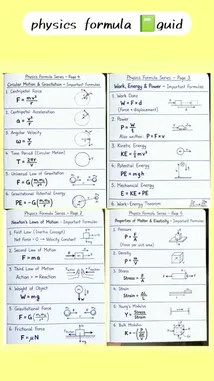 physics formula guid
Physics Formula Series - Page 4
Circular Motion & Gravitation - Important Formulas
1. Centripetal Force
F = mv²/r
2. Centripetal Acceleration
a = v²/r
3. Angular Velocity
ω = v/r
4. Time Period (Circular Motion)
T = 2πr/v
5. Universal Law of Gravitation
6. Gravitational Potential Energy
Physics Formula Series - Page 3
Work, Energy & Power - Important Formulas
1. Work Done
W = F × d
(Force × displacement)
2. Power
P = W/t
Also written: P = F × v
3. Kinetic Energy
KE = ½mv²
4. Potential Energy
PE = mgh
5. Mechanical Energy
E = KE + PE
6. Work-Energy Theorem
Physics Formula Series - Page 2
Newton's Laws of Motion - Important Formulas
1. First Law (Inertia Concept)
Net Force = 0 → Velocity Constant
2. Second Law of Motion
F = ma
3. Third Law of Motion
Action = - Reaction
4. Weight of Object
W = mg
5. Gravitational Force
6. Frictional Force
F = μN
Physics Formula Series - Page 5
Properties of Matter & Elasticity - Important Formulas
1. Pressure
P = F/A
(Force per unit area)
2. Density
3. Stress
Stress = F/A
4. Strain
5. Young's Modulus
Y = Stress/Strain
6. Bulk Modulus